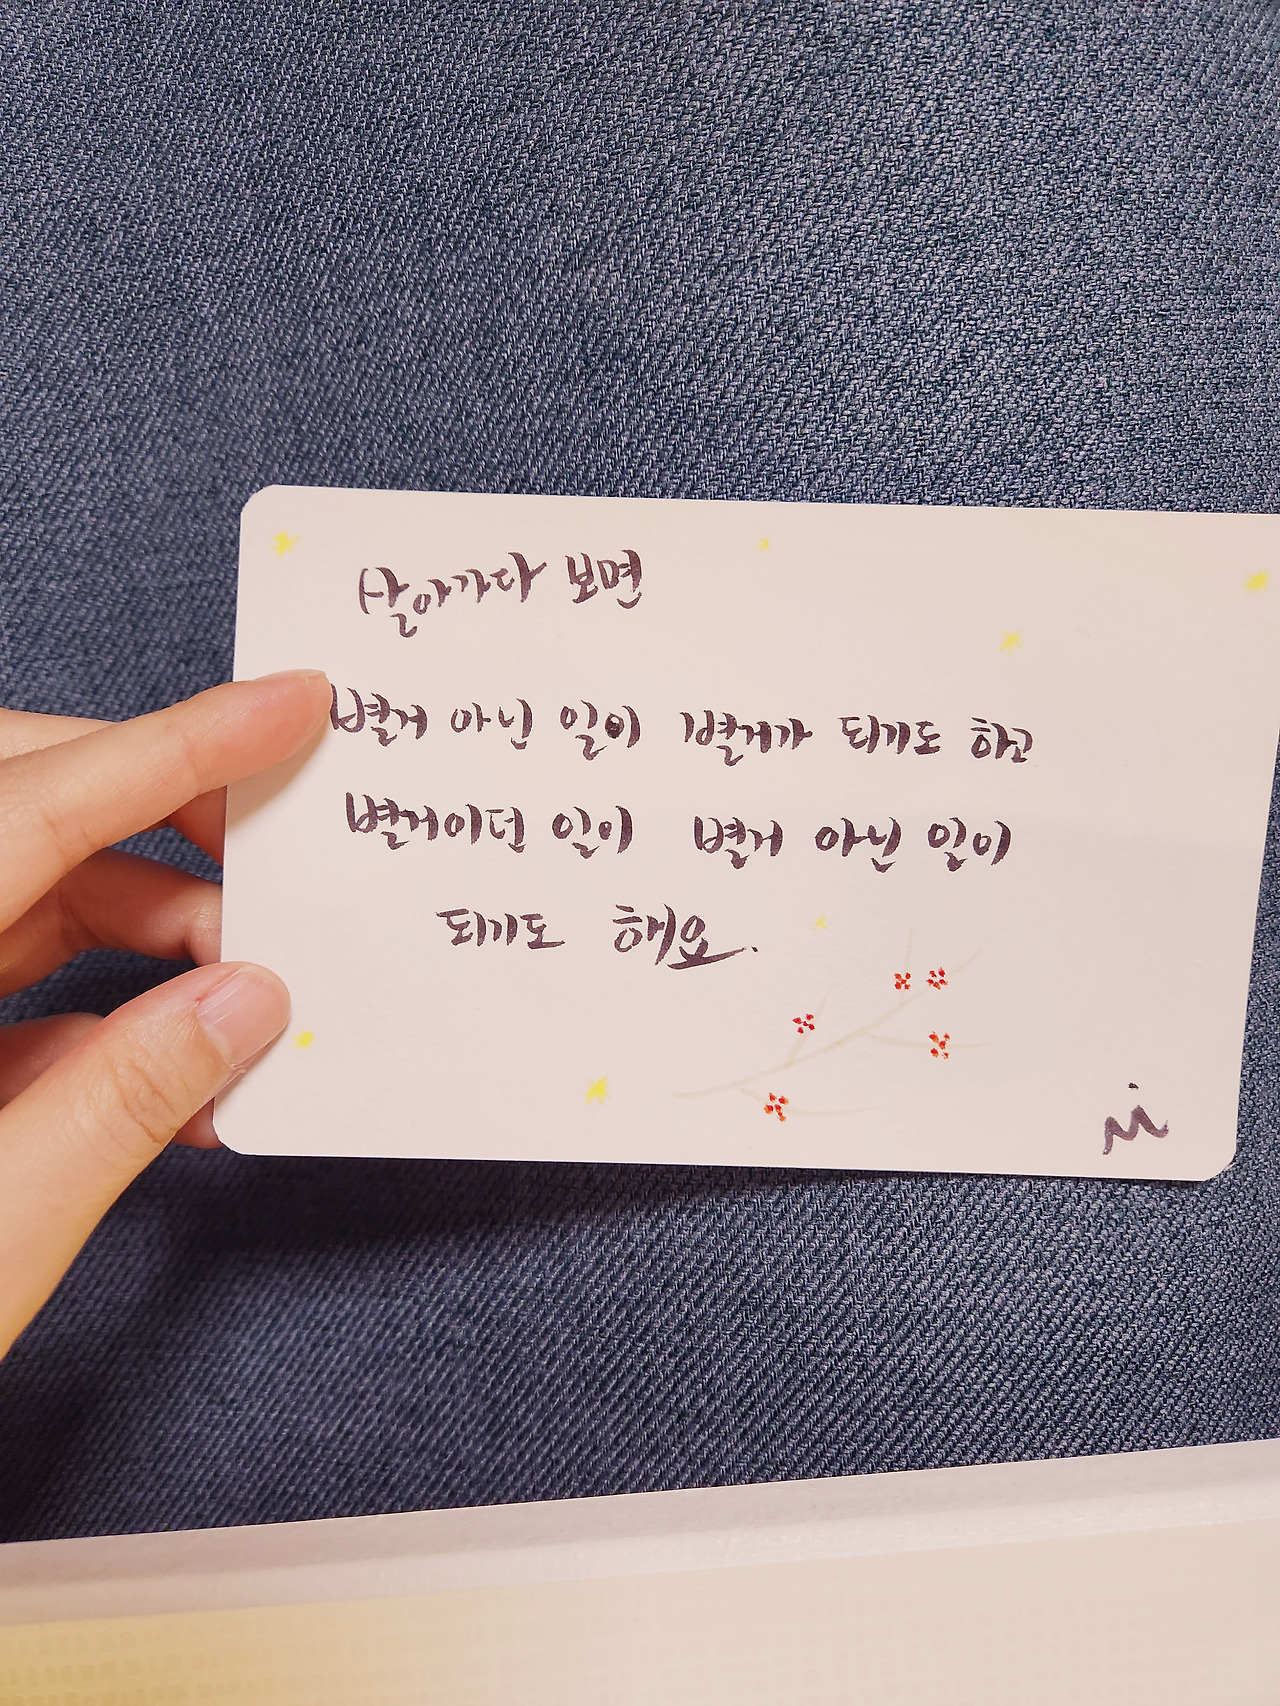 살아가다 보면
별거 아닌 일이 별거가 되기도 하고
별거이던 일이 별거 아닌 일이
되기도 해요.